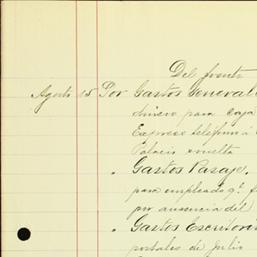 Del frente
Agosto 15 Por Gastos General
dinero para Caja
Expreso teléfono á
Palacio vuelta
" Gastos Pasaje.
para empleado q.e f
por ausencia del
" Gastos Escritori
portales de Julio